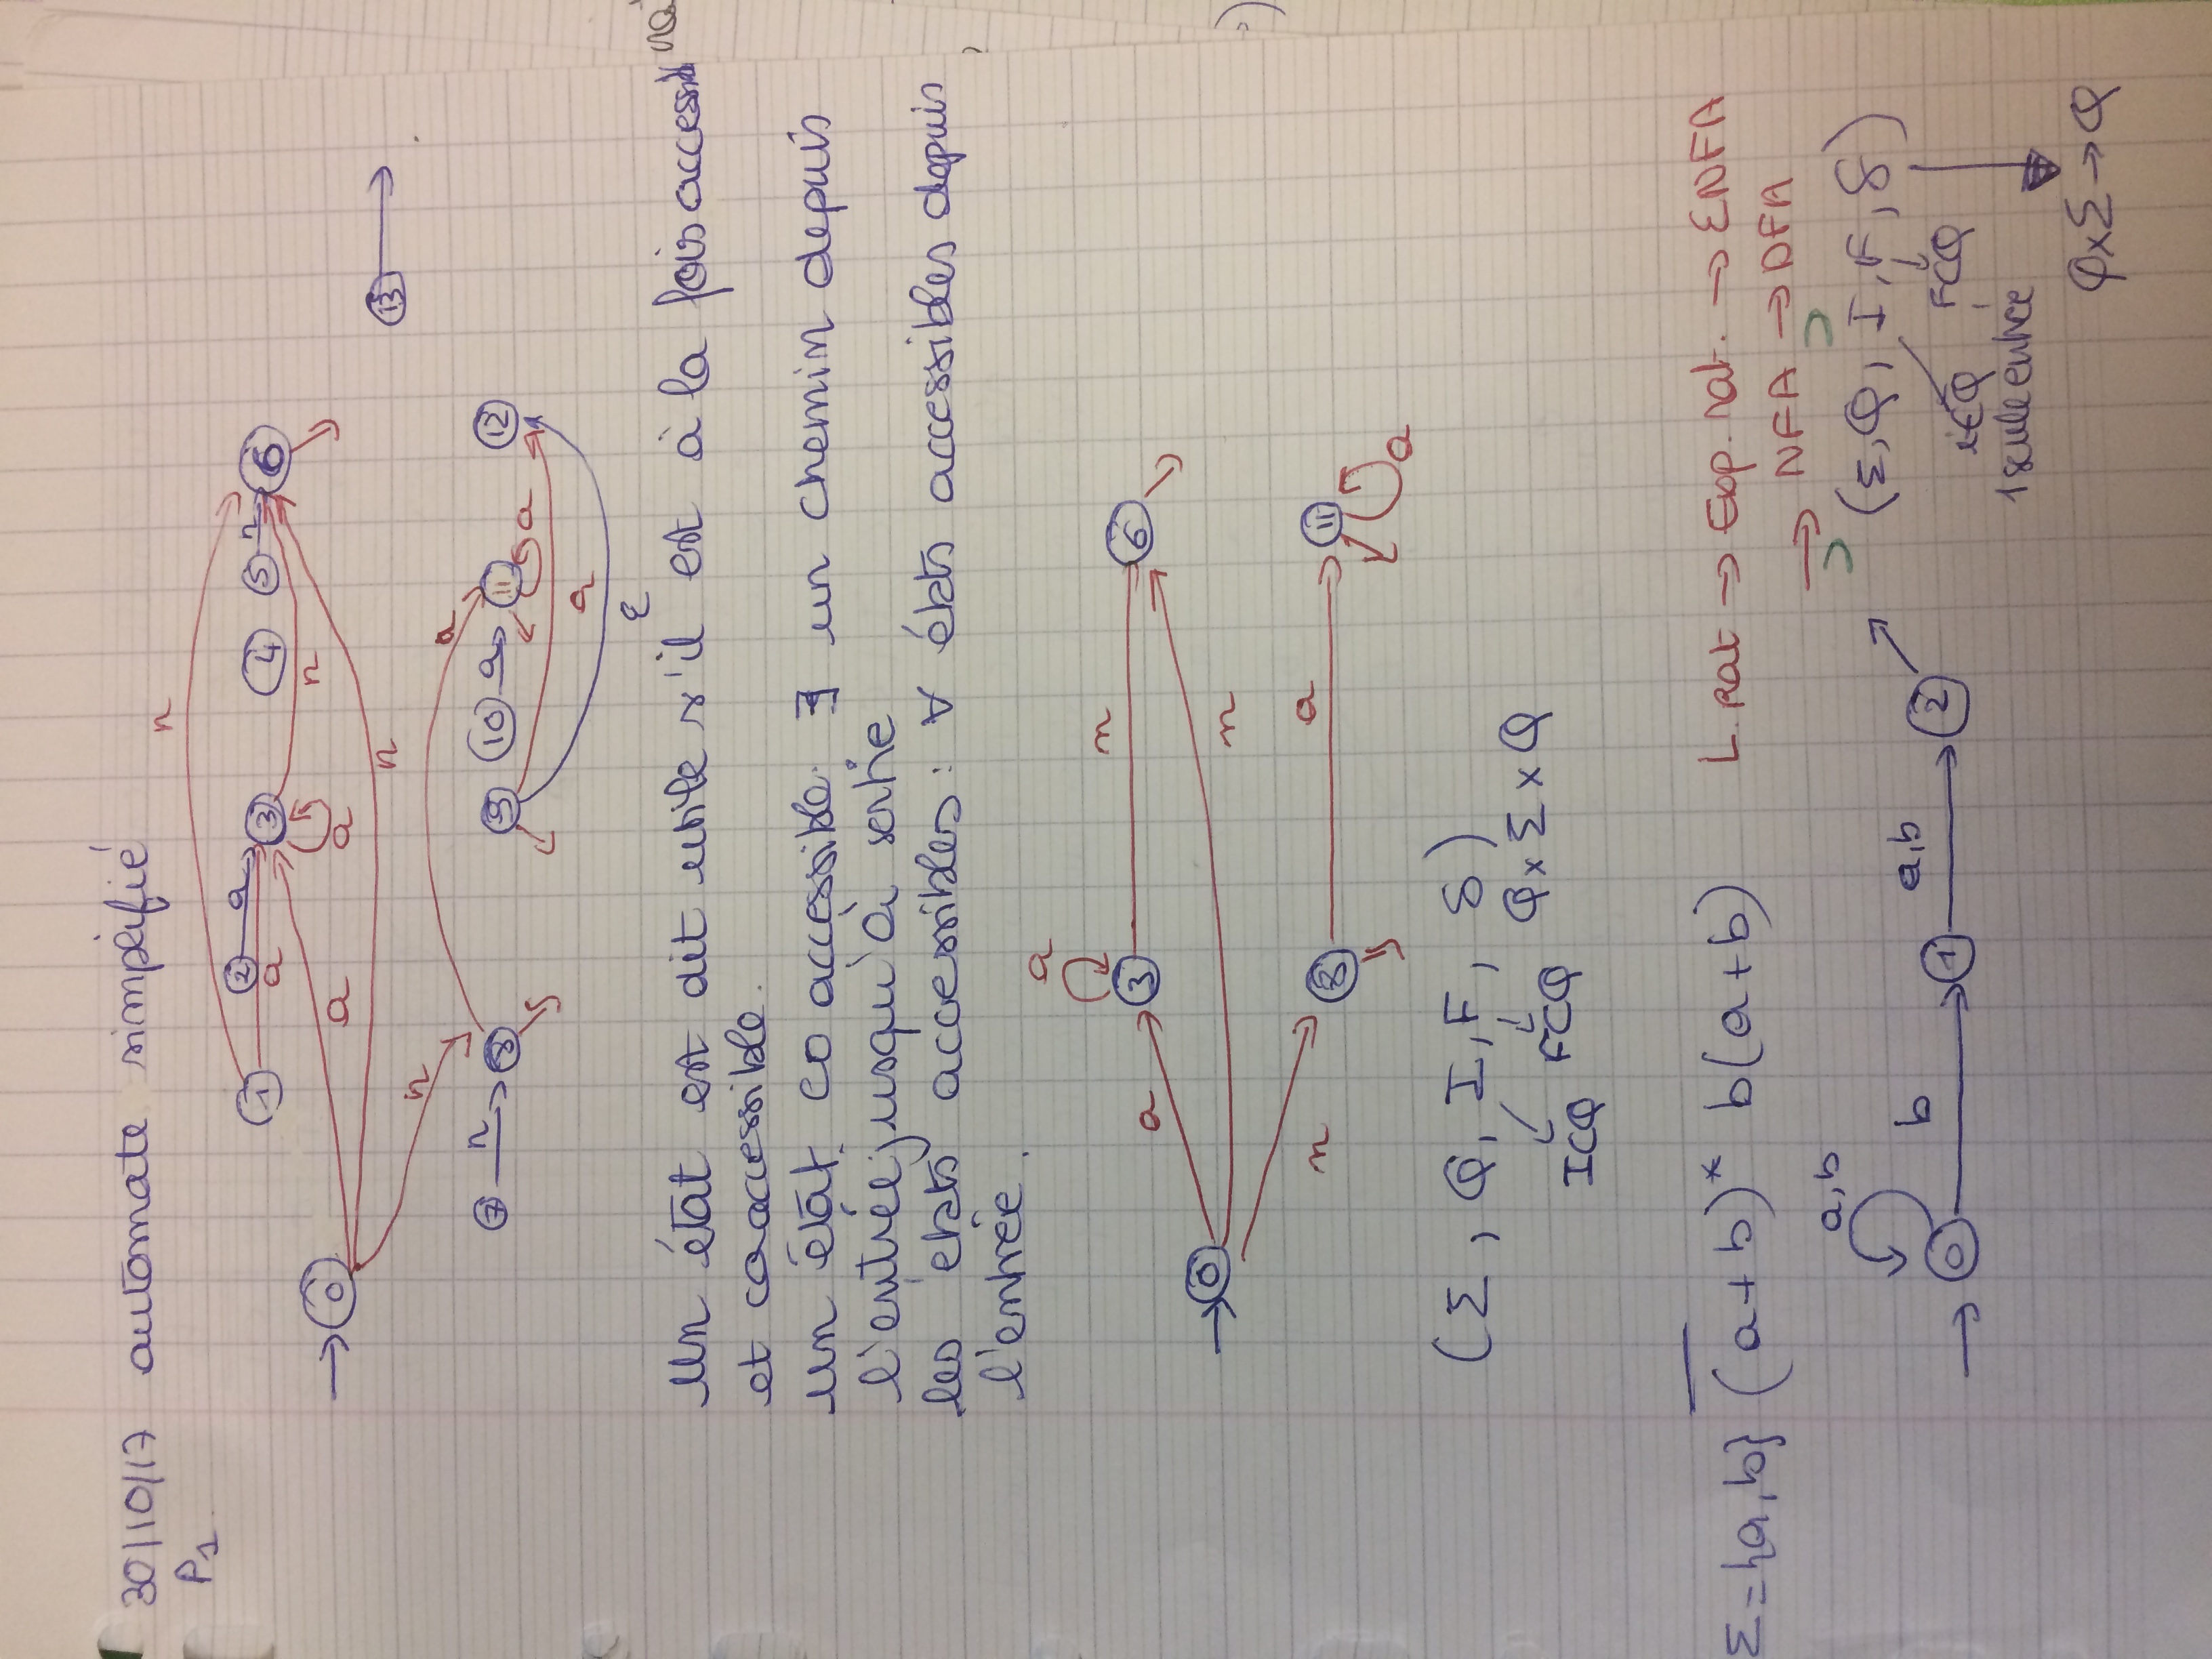 30/10/17 automate simplifié
P1
n
1 2 a 3 4 5 n 6
a
0 a a n
n
13
n a
7 n 8 9 10 a 11 12
a
a
ε
Un état est dit utile s'il est à la fois accessib
et coaccessible.
un état co accessible: ∃ un chemin depuis
l'entrée jusqu'à sortie
les états accessibles: ∀ états accessibles depuis
l'entrée.
a
a 3 n 6
0
n
n 8 a 11
a
(Σ, Q, I, F, δ)
I⊂Q F⊂Q Q×Σ×Q
Σ={a,b} (a+b)* b(a+b)
L. Rat → Exp. rat. → ENFA
→ NFA → DFA
a,b
0 b 1 a,b 2
(Σ, Q, I, F, δ)
i∈Q F⊂Q
1 seule entrée
Q×Σ→Q